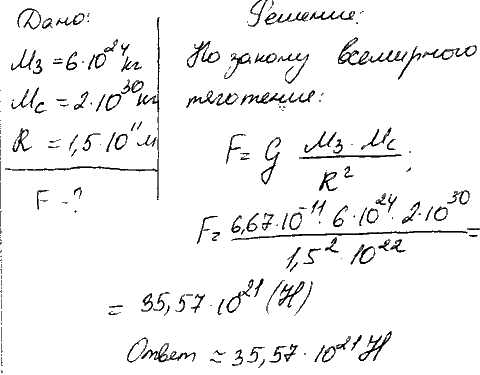 Дано:
Mз = 6·10²⁴ кг
Mc = 2·10³⁰ кг
R = 1,5·10¹¹ м
F - ?
Решение:
По закону всемирного
тяготения:
F = G Mз·Mc / R² ;
F = 6,67·10⁻¹¹·6·10²⁴·2·10³⁰ / 1,5²·10²² =
= 35,57·10²¹ (Н)
Ответ ≈ 35,57·10²¹ Н